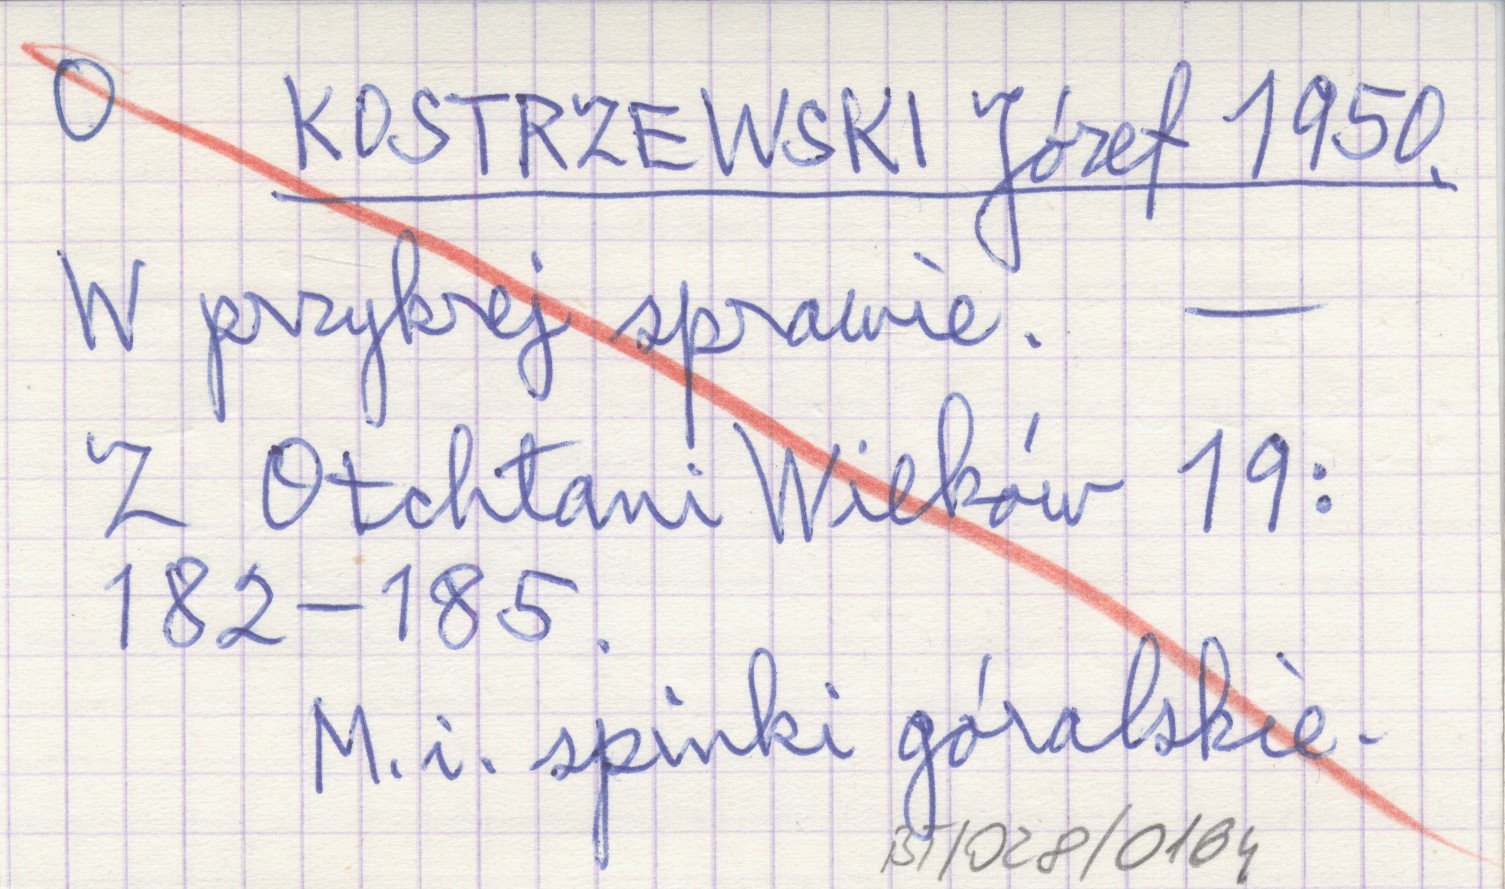 O KOSTRZEWSKI Józef 1950.
W przykrej sprawie. —
Z Otchłani Wieków 19:
182-185.
M. i. spinki góralskie.
BT/028/0164